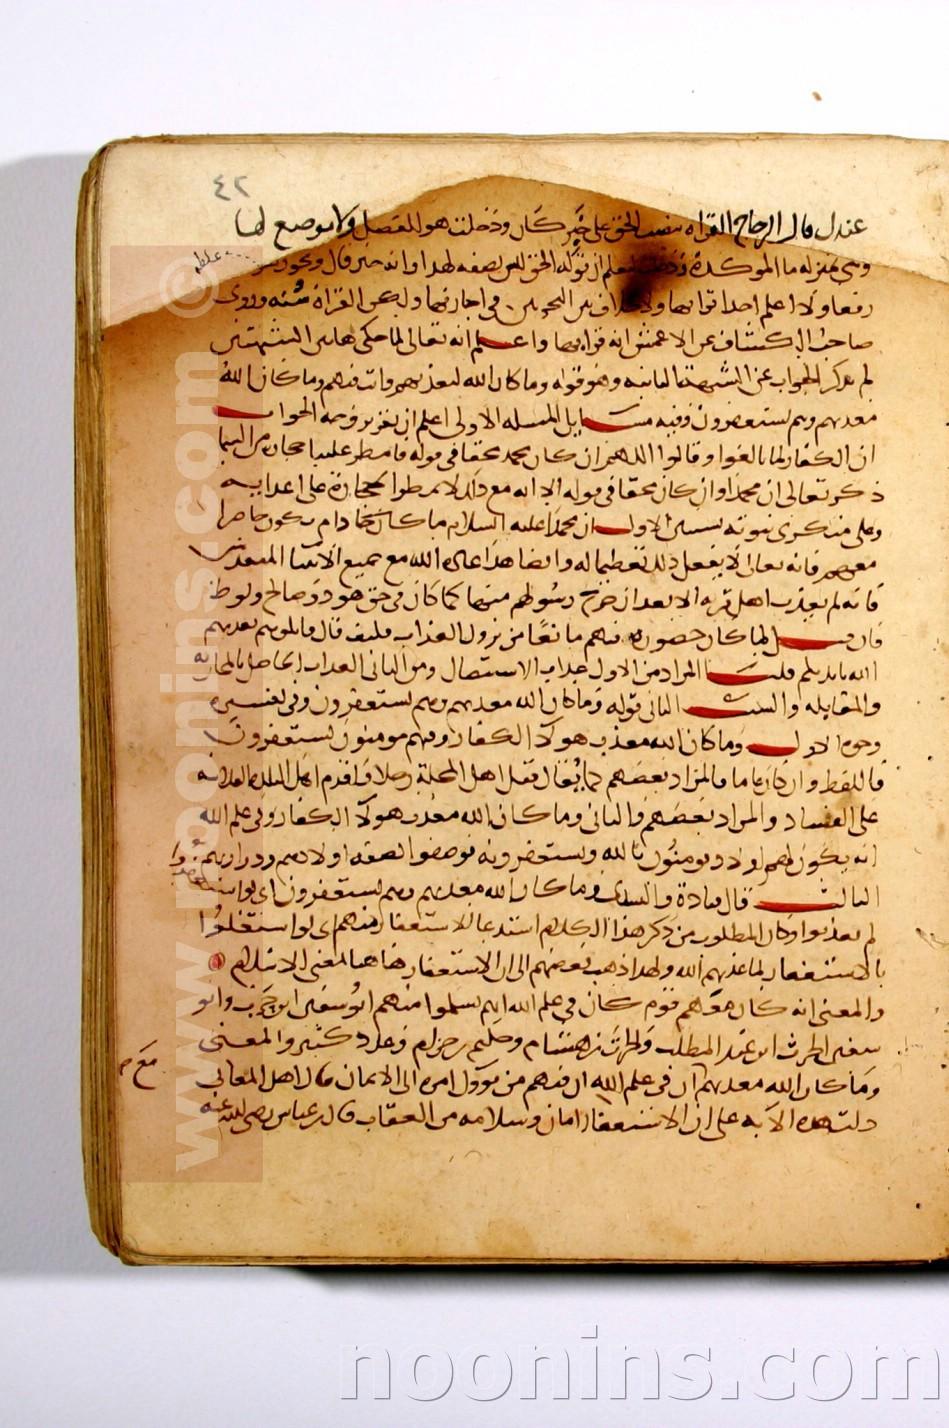 ٤٢
عندك قال الزجاج القراءه بنصب الحق على خبر كان ودخلت هو للفصل ولا موضع لها
وهي بمنزله ما الموكدة دخلت ليعلم ان قوله الحق ليس بصفه لهذا وانه خبر قال ويجوز
رفعا ولا اعلم احدا قرا بها ولا خلاف بين النحويين في اجازتها ولكن القراة سُنه وروى
صاحب الكشاف عن الاعمش انه قرا بها واعلم انه تعالى لما حكى هاتين الشبهتين
لم يذكر الجواب عن الشبهة الثانيه وهو قوله وما كان الله ليعذبهم وانت فيهم وما كان الله
معذبهم وهم يستغفرون وفيه مسايل المسله الاولى اعلم ان تقرير وجه الجواب
ان الكفار لما بالغوا وقالوا اللهم ان كان محمد محقا في قوله فامطر علينا حجارة من السما
ذكر تعالى ان محمدا وان كان محقا في قوله الا انه مع ذلك لا يمطر الحجارة على اعدايه
وعلى منكرى نبوته لسببين الاول ان محمدا عليه السلام ما كان دام يكون حاضرا
معهم فانه تعالى لا يفعل ذلك تعظيما له وايضا هذا عادة الله مع جميع الانبيا المتقدمين
فانه لم يعذب اهل قرية الا بعد ان خرج رسولهم منها كما كان في حق هود وصالح ولوط
فان قيل لما كان حضوره فيهم مانعا من نزول العذاب فكيف قال قاتلوهم يعذبهم
الله بايديكم قلنا المراد من الاول عذاب الاستصال ومن الثانى العذاب الحاصل بالمحاربه
والمقابله والسبب الثانى قوله وما كان الله معذبهم وهم يستغفرون وفى تفسيره
وجوه الاول وما كان الله معذب هولا الكفار وفيهم مومنون يستغفرون
فاللفظ وان كان عاما فالمراد بعضهم كما يُقال قتل اهل المحلة رجلا واقدم اهل البلده الفلانيه
على الفساد والمراد بعضهم والثانى وما كان الله معذب هولا الكفار وفى علم الله
انه يكون لهم اولاد يومنون بالله ويستغفرونه فوصفوا بصفه اولادهم وذراريهم
الثالث قال قتادة والسدى وما كان الله معذبهم وهم يستغفرون اى لو استغفروا
لم يعذبوا وكان المطلوب من ذكر هذا الكلام استدعا الاستغفار منهم اى لو اشتغلوا
بالاستغفار لما عذبهم الله ولهذا ذهب بعضهم الى ان الاستغفار هاهنا لمعنى الاسلام
والمعنى انه كان معهم قوم كان في علم الله ان يسلموا منهم ابو سفين ابن حرب وابو
سفين الحرث ابن عبد المطلب والحارث بن هشام وحكيم بن حزام وعدد كثير والمعنى
وما كان الله معذبهم ان في علم الله ان فيهم من يوول امره الى الايمان قال اهل المعانى
دلت هذه الايه على ان الاستغفار امان وسلامه من العقاب قال بن عباس رضى الله عنه
© www.noonins.com
noonins.com